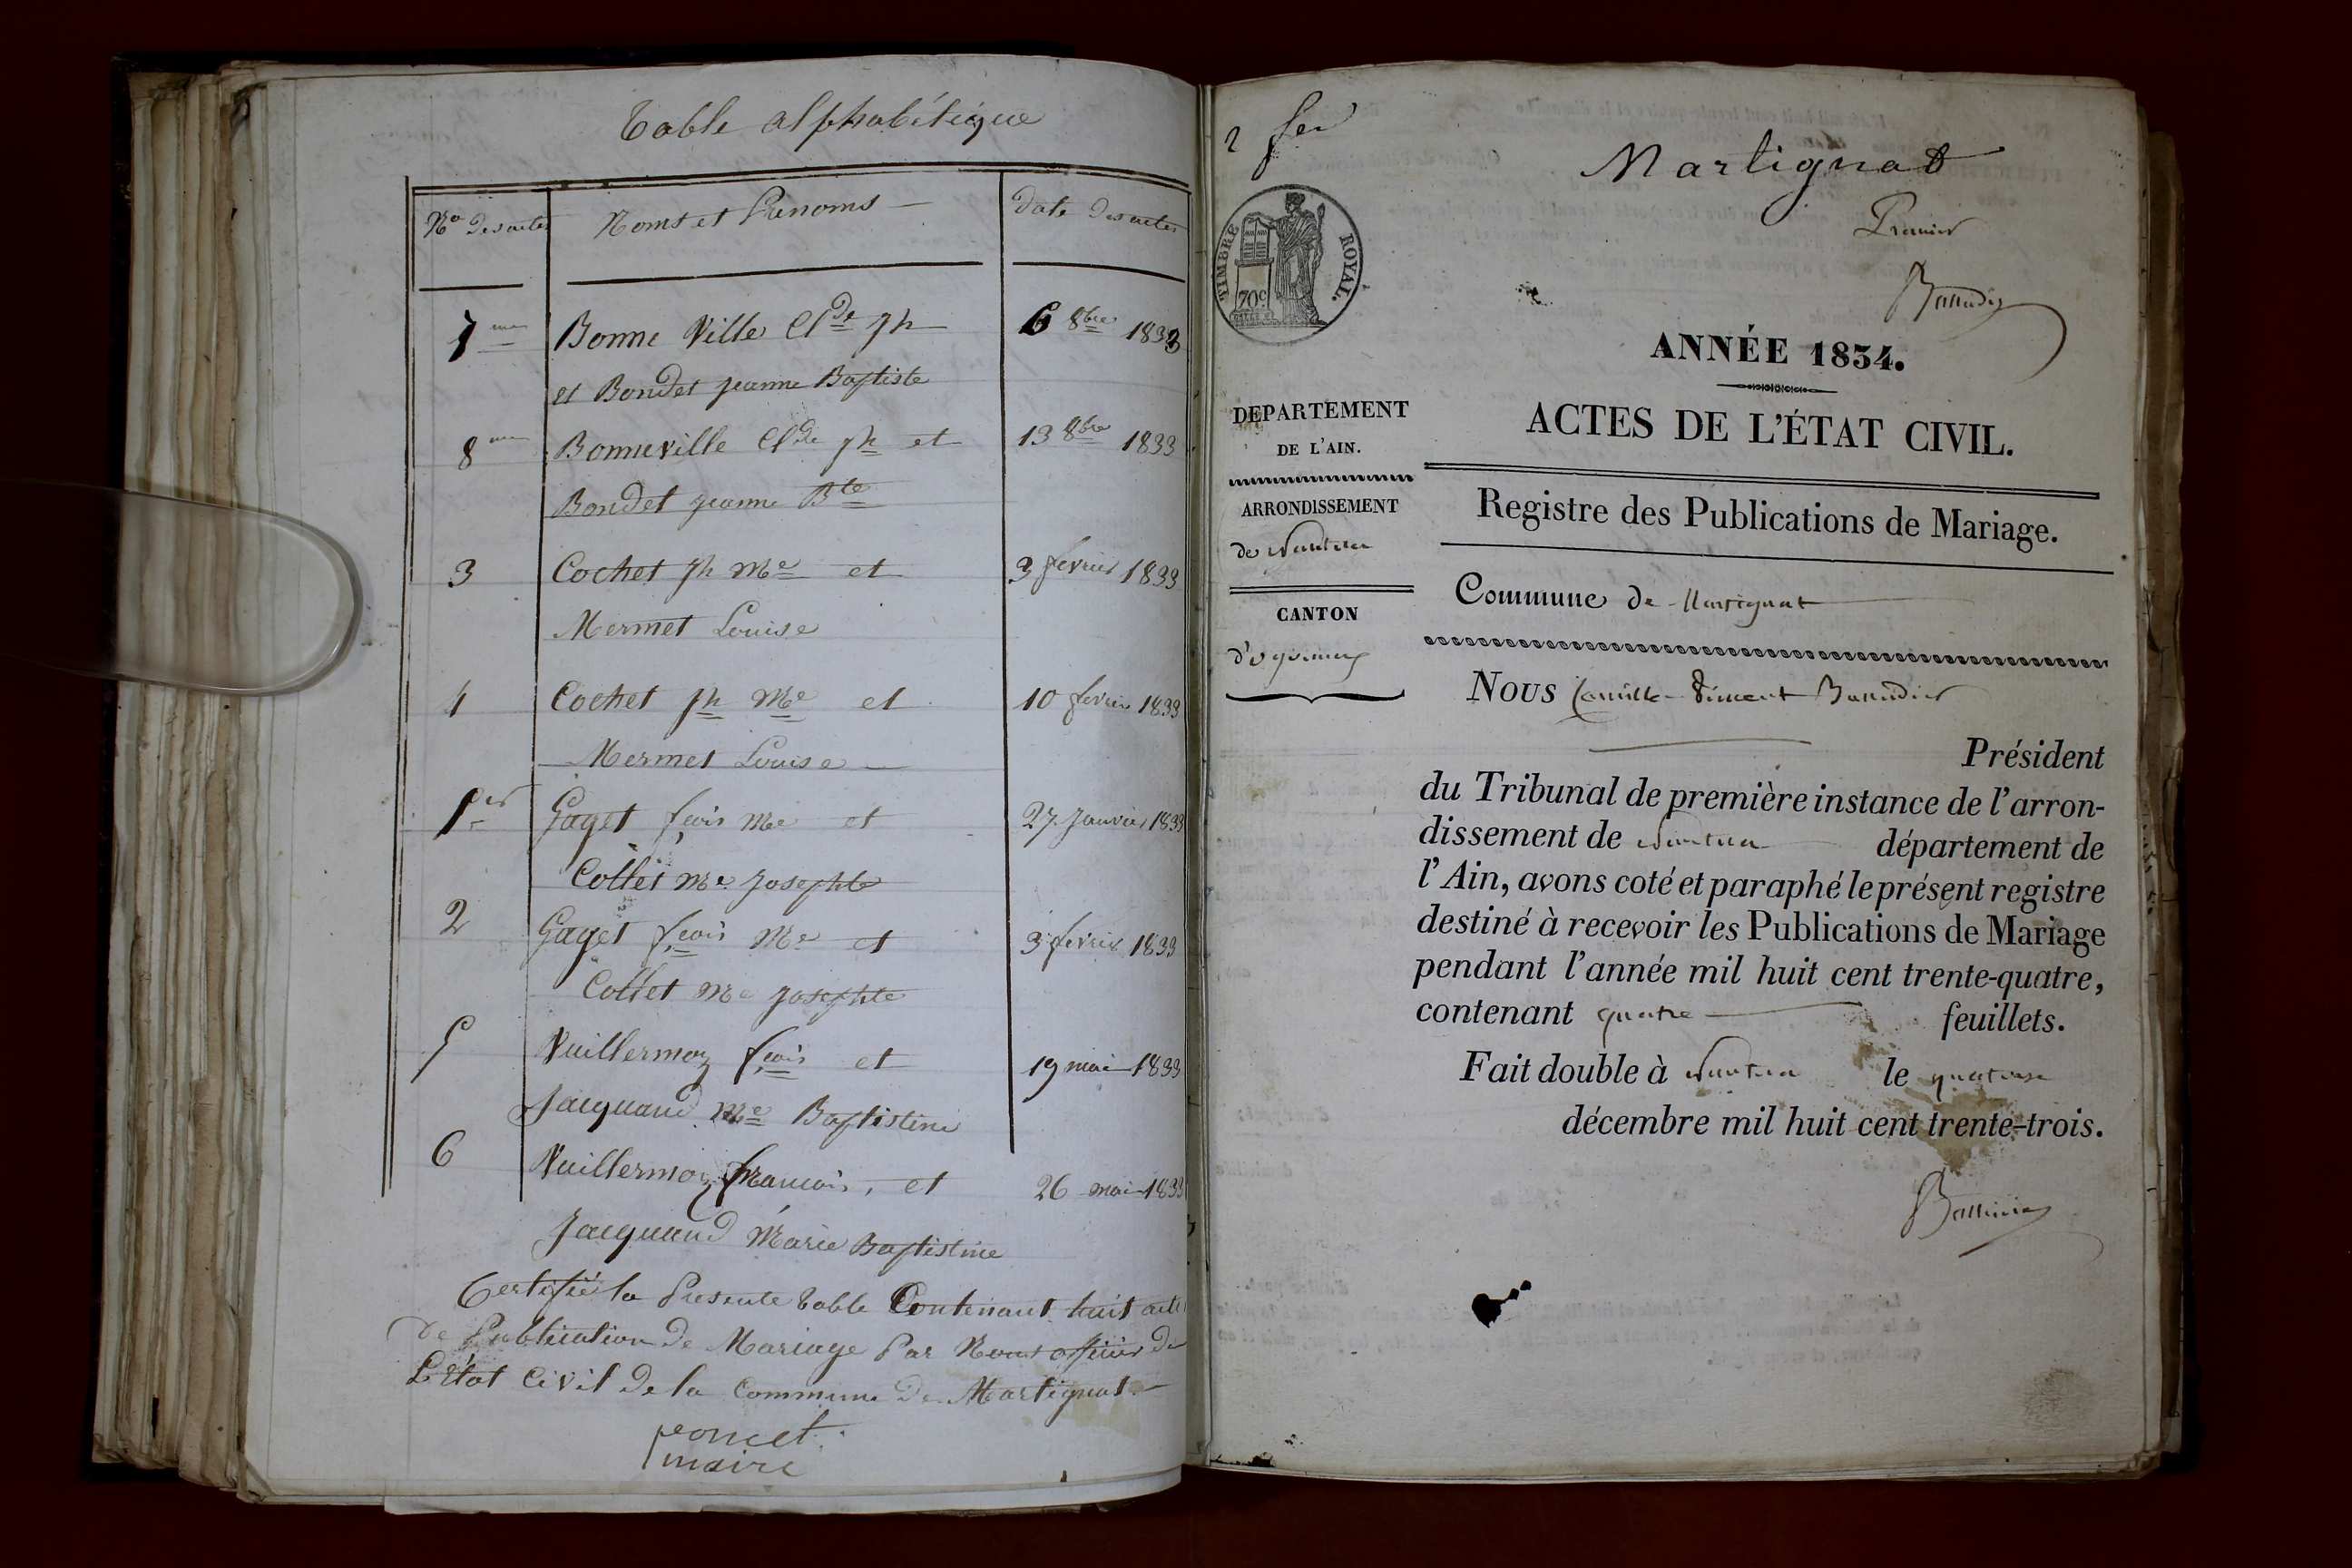 Table alphabétique
No des actes
Noms et Prenoms
date des actes
7me
Bonne Ville Clde jh
6 8bre 1833
et Bondet jeanne Baptiste
8me
Bonneville Clde jh et
13 8bre 1833
Bondet jeanne Bte
3
Cochet jh Me et
3 fevrier 1833
Mermet Louise
4
Cochet jh Me et
10 fevrier 1833
Mermet Louise
1er
Gaget fçois Me et
27 Janvier 1833
Collet Me Josephte
2
Gaget fçois Me et
3 fevrier 1833
Collet Me Josephte
5
Vuillermoz fçois et
19 mai 1833
Jacquand Me Baptistine
6
Vuillermoz françois, et
26 mai 1833
Jacquand Marie Baptistine
Certifié la Presente table Contenant huit actes
de Publication de Mariage Par Nous officier de
L'Etat Civil de la Commune De Martignat
poncet
maire
Martignat
Premier
TIMBRE ROYAL.
70c
ANNÉE 1834.
DEPARTEMENT
DE L'AIN.
ARRONDISSEMENT
de Nantua
CANTON
d'oyonnax
ACTES DE L'ÉTAT CIVIL.
Registre des Publications de Mariage.
Commune de Martignat
Nous Camille Vincent
Président
du Tribunal de première instance de l'arron-
dissement de Nantua département de
l'Ain, avons coté et paraphé le présent registre
destiné à recevoir les Publications de Mariage
pendant l'année mil huit cent trente-quatre,
contenant quatre feuillets.
Fait double à Nantua le quatorze
décembre mil huit cent trente-trois.